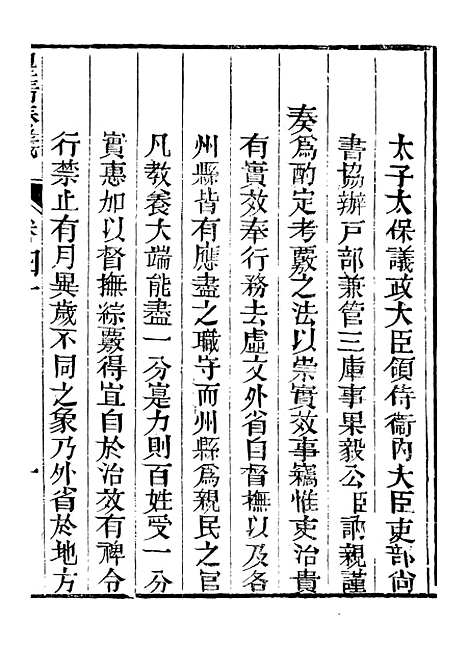 太子太保議政大臣領侍衞內大臣吏部尚
書協辦戶部兼管三庫事果毅公臣訥親謹
奏爲酌定考覈之法以崇實效事竊惟吏治貴
有實效奉行務去虛文外省自督撫以及各
州縣皆有應盡之職守而州縣爲親民之官
凡教養大端能盡一分寔力則百姓受一分
實惠加以督撫綜覈得宜自於治效有裨令
行禁止有月異歲不同之象乃外省於地方
皇清奏議
卷四十
一